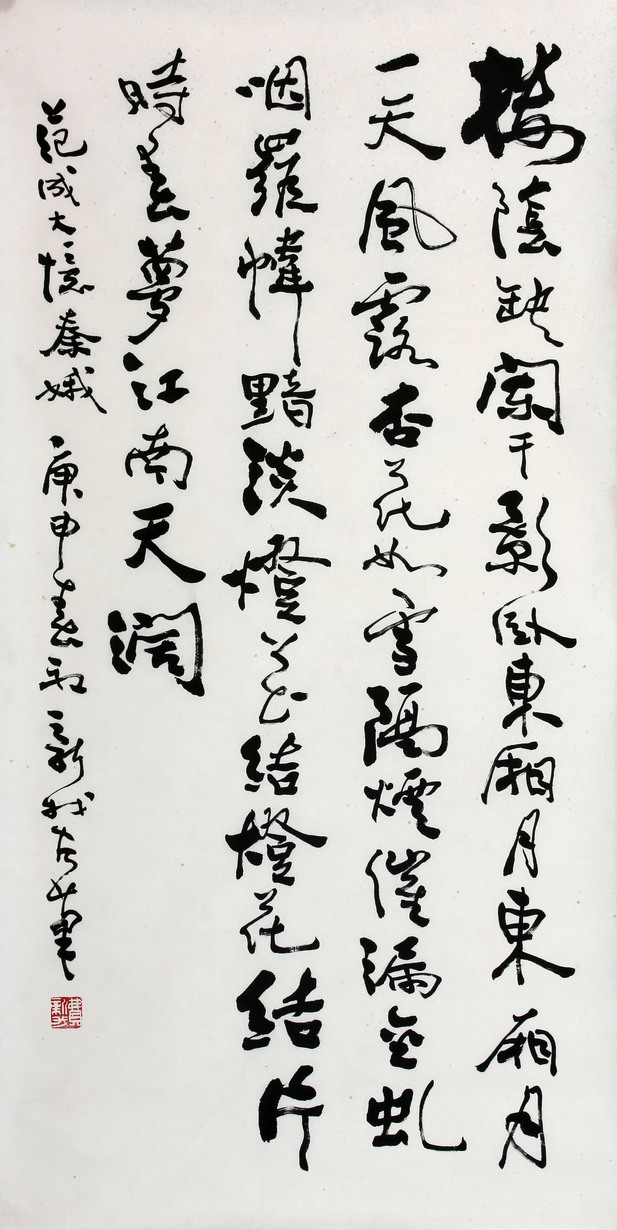 樓陰缺闌干影臥東廂月東廂月
一天風露杏花如雪隔煙催漏金虬
咽羅幃黯淡燈花結燈花結片
時春夢江南天闊
范成大憶秦娥 庚申春和新我左筆
費新我